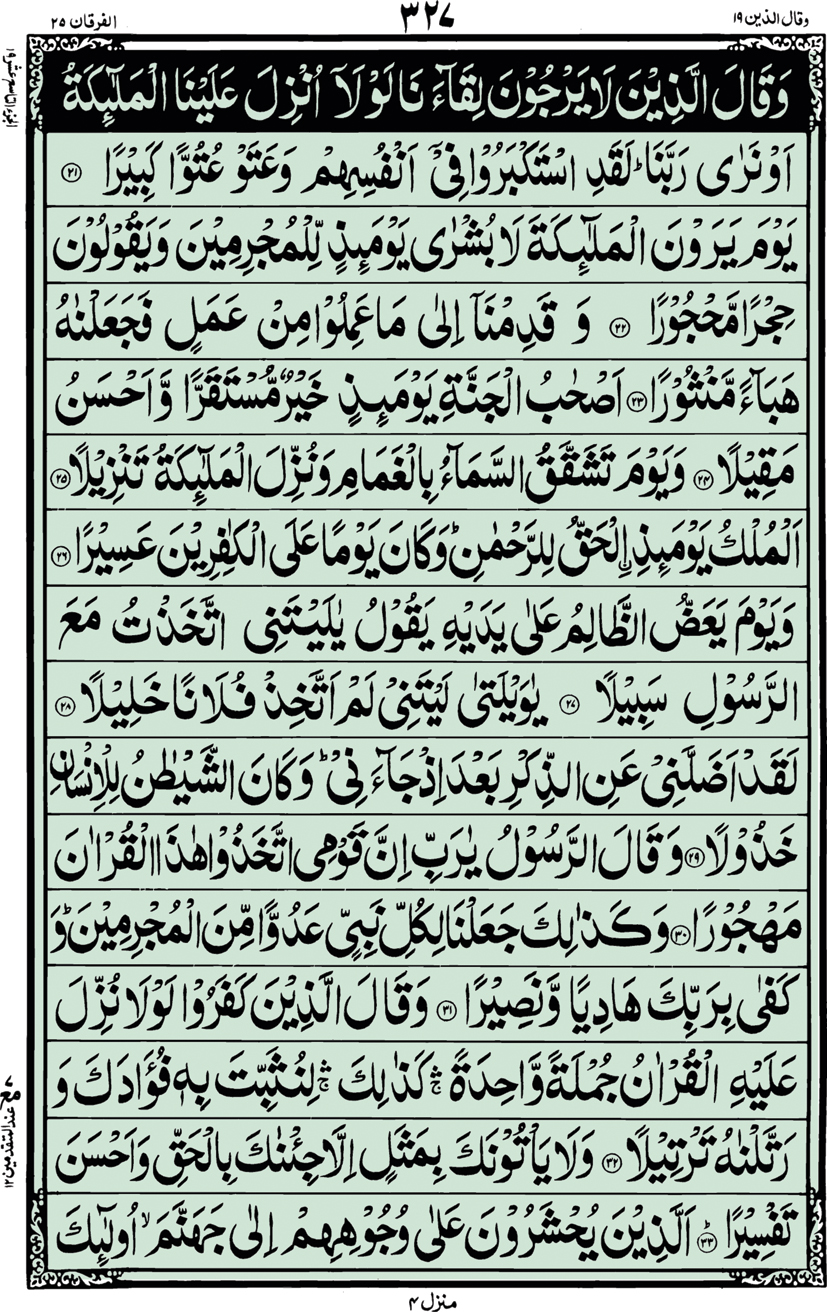 الفرقان ٢٥
٣٢٧
وقال الذين ١٩
وَقَالَ الَّذِيْنَ لَا يَرْجُوْنَ لِقَآءَ نَا لَوْلَاۤ اُنْزِلَ عَلَيْنَا الْمَلٰٓئِكَةُ
اَوْ نَرٰى رَبَّنَا ؕ لَقَدِ اسْتَكْبَرُوْا فِيْۤ اَنْفُسِهِمْ وَعَتَوْ عُتُوًّا كَبِيْرًا ۝۲۱
يَوْمَ يَرَوْنَ الْمَلٰٓئِكَةَ لَا بُشْرٰى يَوْمَئِذٍ لِّلْمُجْرِمِيْنَ وَيَقُوْلُوْنَ
حِجْرًا مَّحْجُوْرًا ۝۲۲ وَ قَدِمْنَاۤ اِلٰى مَا عَمِلُوْا مِنْ عَمَلٍ فَجَعَلْنٰهُ
هَبَآءً مَّنْثُوْرًا ۝۲۳ اَصْحٰبُ الْجَنَّةِ يَوْمَئِذٍ خَيْرٌ مُّسْتَقَرًّا وَّاَحْسَنُ
مَقِيْلًا ۝۲۴ وَيَوْمَ تَشَقَّقُ السَّمَآءُ بِالْغَمَامِ وَنُزِّلَ الْمَلٰٓئِكَةُ تَنْزِيْلًا ۝۲۵
اَلْمُلْكُ يَوْمَئِذِ اِۨلْحَقُّ لِلرَّحْمٰنِ ؕ وَكَانَ يَوْمًا عَلَى الْكٰفِرِيْنَ عَسِيْرًا ۝۲۶
وَيَوْمَ يَعَضُّ الظَّالِمُ عَلٰى يَدَيْهِ يَقُوْلُ يٰلَيْتَنِى اتَّخَذْتُ مَعَ
الرَّسُوْلِ سَبِيْلًا ۝۲۷ يٰوَيْلَتٰى لَيْتَنِيْ لَمْ اَتَّخِذْ فُلَانًا خَلِيْلًا ۝۲۸
لَقَدْ اَضَلَّنِيْ عَنِ الذِّكْرِ بَعْدَ اِذْ جَآءَ نِيْ ؕ وَكَانَ الشَّيْطٰنُ لِلْاِنْسَانِ
خَذُوْلًا ۝۲۹ وَقَالَ الرَّسُوْلُ يٰرَبِّ اِنَّ قَوْمِى اتَّخَذُوْا هٰذَا الْقُرْاٰنَ
مَهْجُوْرًا ۝۳۰ وَكَذٰلِكَ جَعَلْنَا لِكُلِّ نَبِيٍّ عَدُوًّا مِّنَ الْمُجْرِمِيْنَ ؕ وَ
كَفٰى بِرَبِّكَ هَادِيًا وَّنَصِيْرًا ۝۳۱ وَقَالَ الَّذِيْنَ كَفَرُوْا لَوْلَا نُزِّلَ
عَلَيْهِ الْقُرْاٰنُ جُمْلَةً وَّاحِدَةً ۛۚ كَذٰلِكَ ۛۚ لِنُثَبِّتَ بِهٖ فُؤَادَكَ وَ
رَتَّلْنٰهُ تَرْتِيْلًا ۝۳۲ وَلَا يَاْتُوْنَكَ بِمَثَلٍ اِلَّا جِئْنٰكَ بِالْحَقِّ وَاَحْسَنَ
تَفْسِيْرًا ؕ ۝۳۳ اَلَّذِيْنَ يُحْشَرُوْنَ عَلٰى وُجُوْهِهِمْ اِلٰى جَهَنَّمَ ۙ اُولٰٓئِكَ
مع عند المتقدمين ١٢
منزل ٤